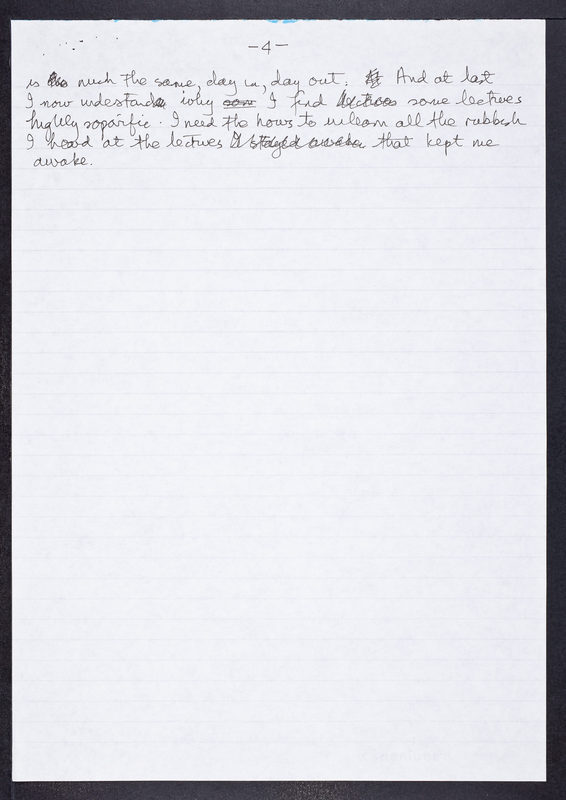 -4-
is much the same, day in, day out. And at last
I now understand why I find some lectures
highly soporific. I need the hours to unlearn all the rubbish
I heard at the lectures that kept me
awake.